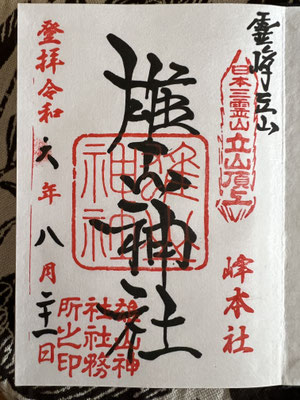 霊峰立山
日本三霊山立山頂上
峰本社
雄山神社
雄山神社
雄山神社社務所之印
登拝令和六年八月二十一日